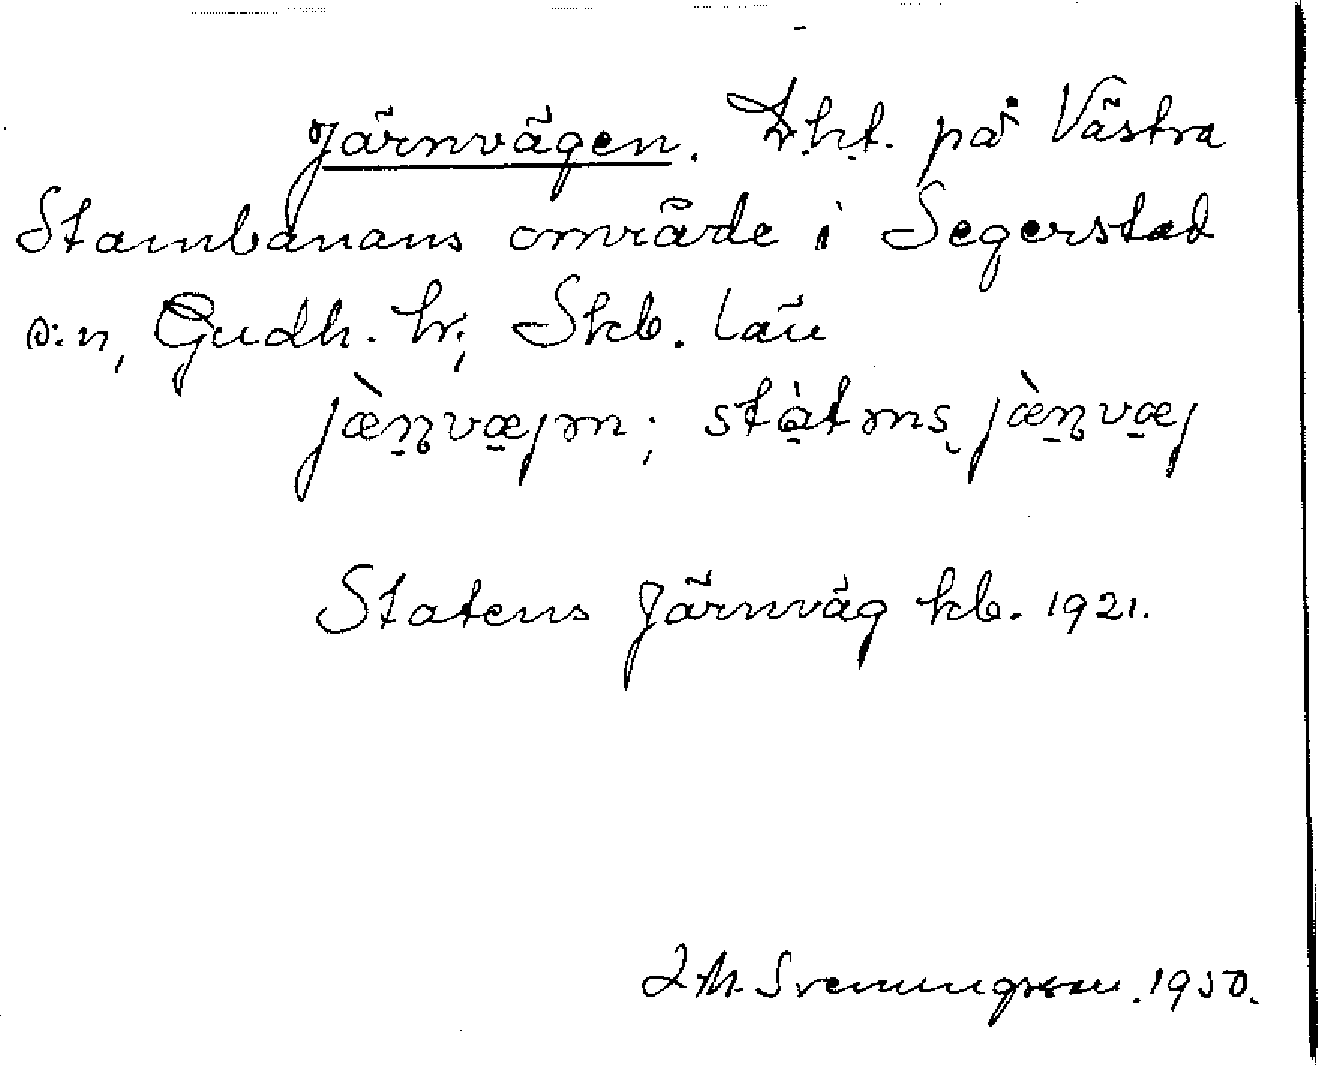 Järnvägen. D.h.t. på Västra
Stambanans område i Segerstad
s:n, Gudh. hr; Skb. län
jæ̀n̥væjən; stàtəns jæ̀n̥væj
Statens Järnväg kb. 1921.
Svenungsson. 1950.